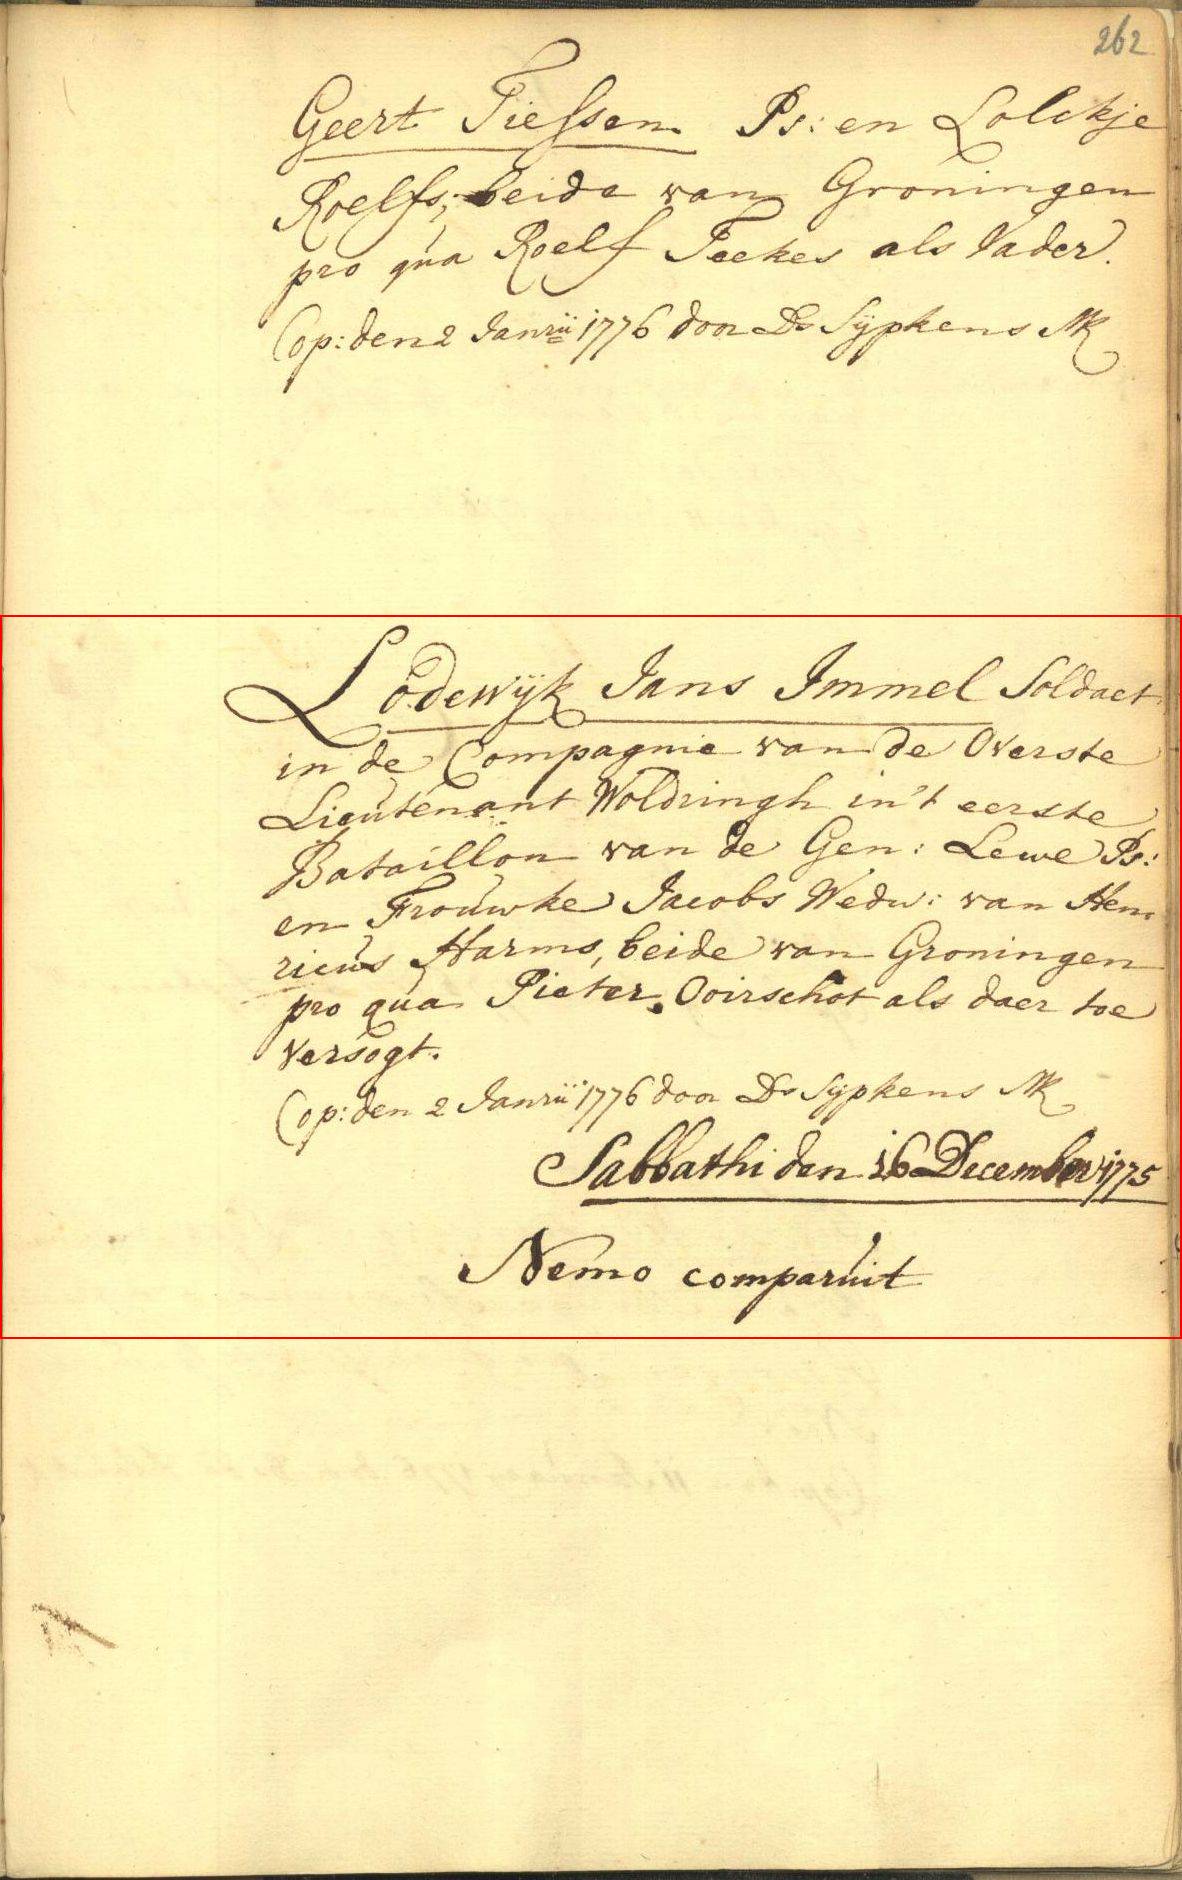 262
Geert Tiessen Ps: en Lolckje
Roelfs, beide van Groningen
pro qua Roelf Feekes als Vader.
Cop: den 2 Janrii 1776 door Ds Sypkens MK
Lodewijk Jans Immel Soldaet
in de Compagnie van de Overste
Lieutenant Woldringh in't eerste
Bataillon van de Gen: Lewe Ps:
en Frouwke Jacobs Wedw: van Hen
ricus Harms, beide van Groningen
pro qua Pieter Ooirschot als daer toe
versogt.
Cop: den 2 Janrii 1776 door Ds Sypkens MK
Sabbathi den 16 December 1775
Nemo comparuit